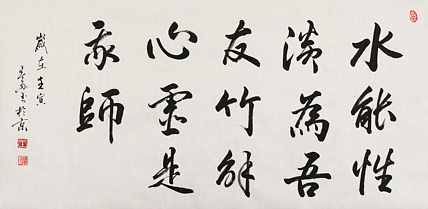 水能性
淡為吾
友竹解
心虛是
我師
歲在壬寅
書於京